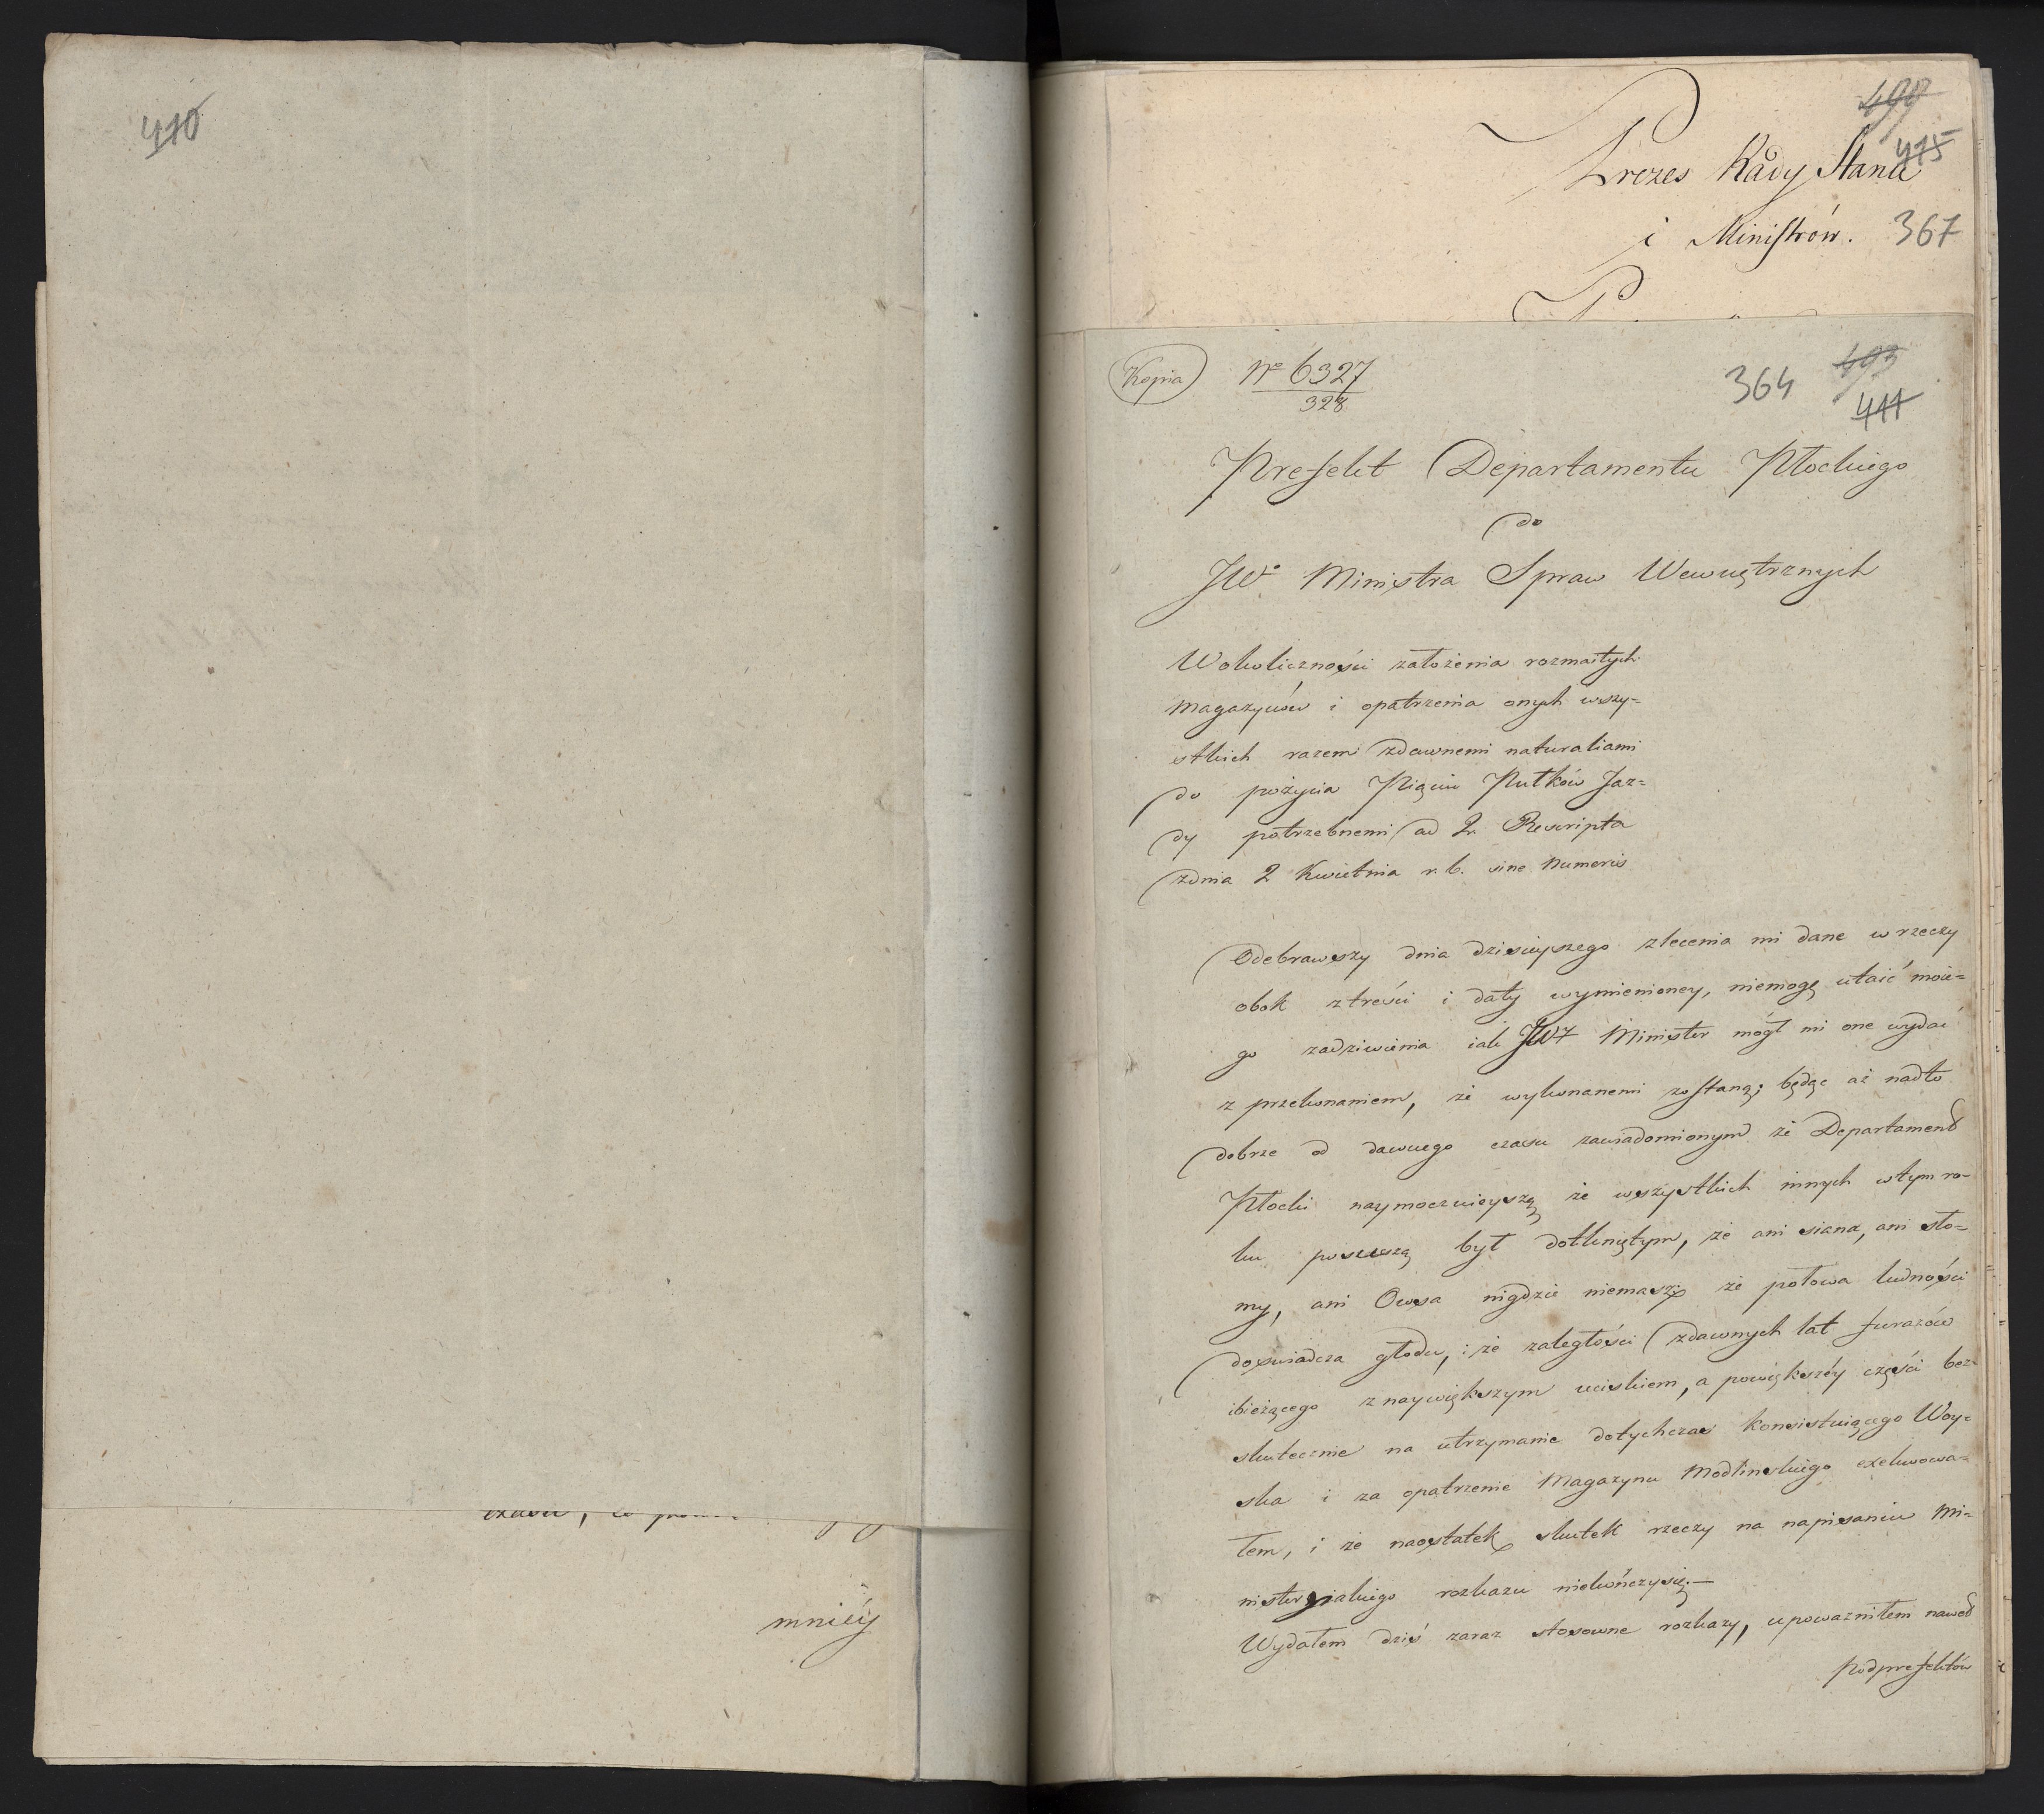 410
czasu, co
mnieÿ
490
415
Prezes Rady Stanu
i Ministrów. 367
Kopia
No 6327
328
364
493
411
Prefekt Departamentu Płockiego
do
JWo Ministra Spraw Wewnętrznych
Wokoliczności założenia rozmaitych
Magazynów i opatrzenia onych wszy=
stkich razem zdawnemi naturaliami
do pożycia Pięciu Pułków Jaz=
dy potrzebnemi ad 2 Rescripta
zdnia 2 Kwietnia r. b. sine Numeris
Odebrawszy dnia dzisieyszego zlecenia mi dane w rzeczy
obok ztreści i daty wymienioney, niemogę utaić moie=
go zadziwienia iak JW Minister mógł mi one wydać
z przekonaniem, że wykonanemi zostaną; będąc aż nadto
dobrze od dawnego czasu zawiadomionym że Departament
Płocki naymocnieyszą ze wszystkich innych wtym ro=
ku posuszą był dotkniętym, że ani siana, ani sło=
my, ani Owsa nigdzie niemasz, że połowa ludności
doświadcza głodu, i że zaległości zdawnych lat furażów
ibieżącego znaywiększym uciskiem, a powiększéy części bez=
skutecznie na utrzymanie dotychczas konsistuiącego Woy=
ska i za opatrzenie Magazynu Modlinskiego exekwowa=
łem, i że naostatek skutek rzeczy na napisaniu Mi=
nisteryalnego rozkazu niekończysię.—
Wydałem dziś zaraz stosowne rozkazy, upoważniłem nawet
Podprefektów